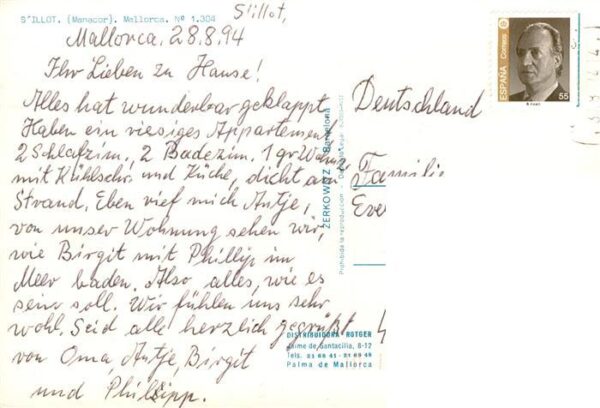 S'ILLOT. (Manacor). Mallorca. Nº 1.304
S'illot,
Mallorca, 28.8.94
Ihr Lieben zu Hause!
Alles hat wunderbar geklappt
Haben ein riesiges Appartement
2 Schlafzim., 2 Badezim. 1 gr
mit Kühlschr. und Küche, dicht am
Strand. Eben rief mich Antje,
von unser Wohnung sehen wir,
wie Birgit mit Phillip im
Meer baden. Also alles, wie es
sein soll. Wir fühlen uns sehr
wohl. Seid alle herzlich gegrüßt
von Oma, Antje, Birgit
und Phillipp.
ESPAÑA
Correos
55
Deutschland
Familie
Eve
ZERKOWITZ Barcelona
Prohibida la reproducción
DISTRIBUIDORA ROTGER
Jaime de Santacilia, 8-12
Palma de Mallorca